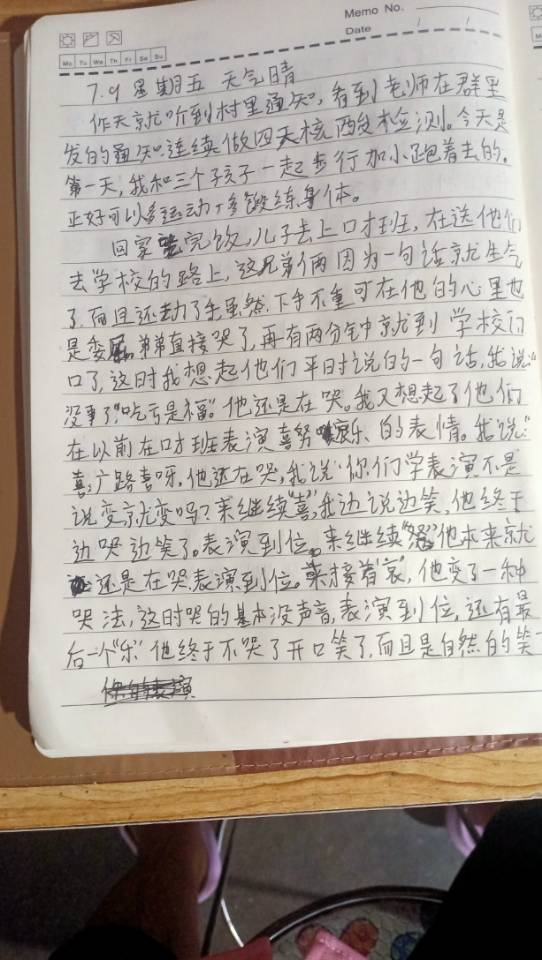 Memo No.
Date / /
Mo Tu We Th Fr Sa Su
7.9 星期五 天气晴
昨天就听到村里通知,看到老师在群里
发的通知:连续做四天核酸检测。今天是
第一天,我和三个孩子一起步行加小跑着去的。
正好可以多运动,多锻练身体。
回家吃完饭,儿子去上口才班,在送他们
去学校的路上,这兄弟俩因为一句话就生气
了,而且还动了手虽然下手不重可在他的心里也
是委屈,弟弟直接哭了,再有两分钟就到学校门
口了,这时我想起他们平时说的一句话,我说:"
没事了"吃亏是福"。他还是在哭。我又想起了他们
在以前在口才班表演喜努哀乐、的表情。我说:"
喜,广路喜呀,他还在哭,我说:你们学表演不是
说变就变吗?来继续"喜",我边说边笑,他终于
边哭边笑了。表演到位。来继续"怒"他本来就
还是在哭,表演到位。来接着"哀",他变了一种
哭法,这时哭的基本没声音,表演到位,还有最
后一个"乐"他终于不哭了开口笑了,而且是自然的笑
你的表演